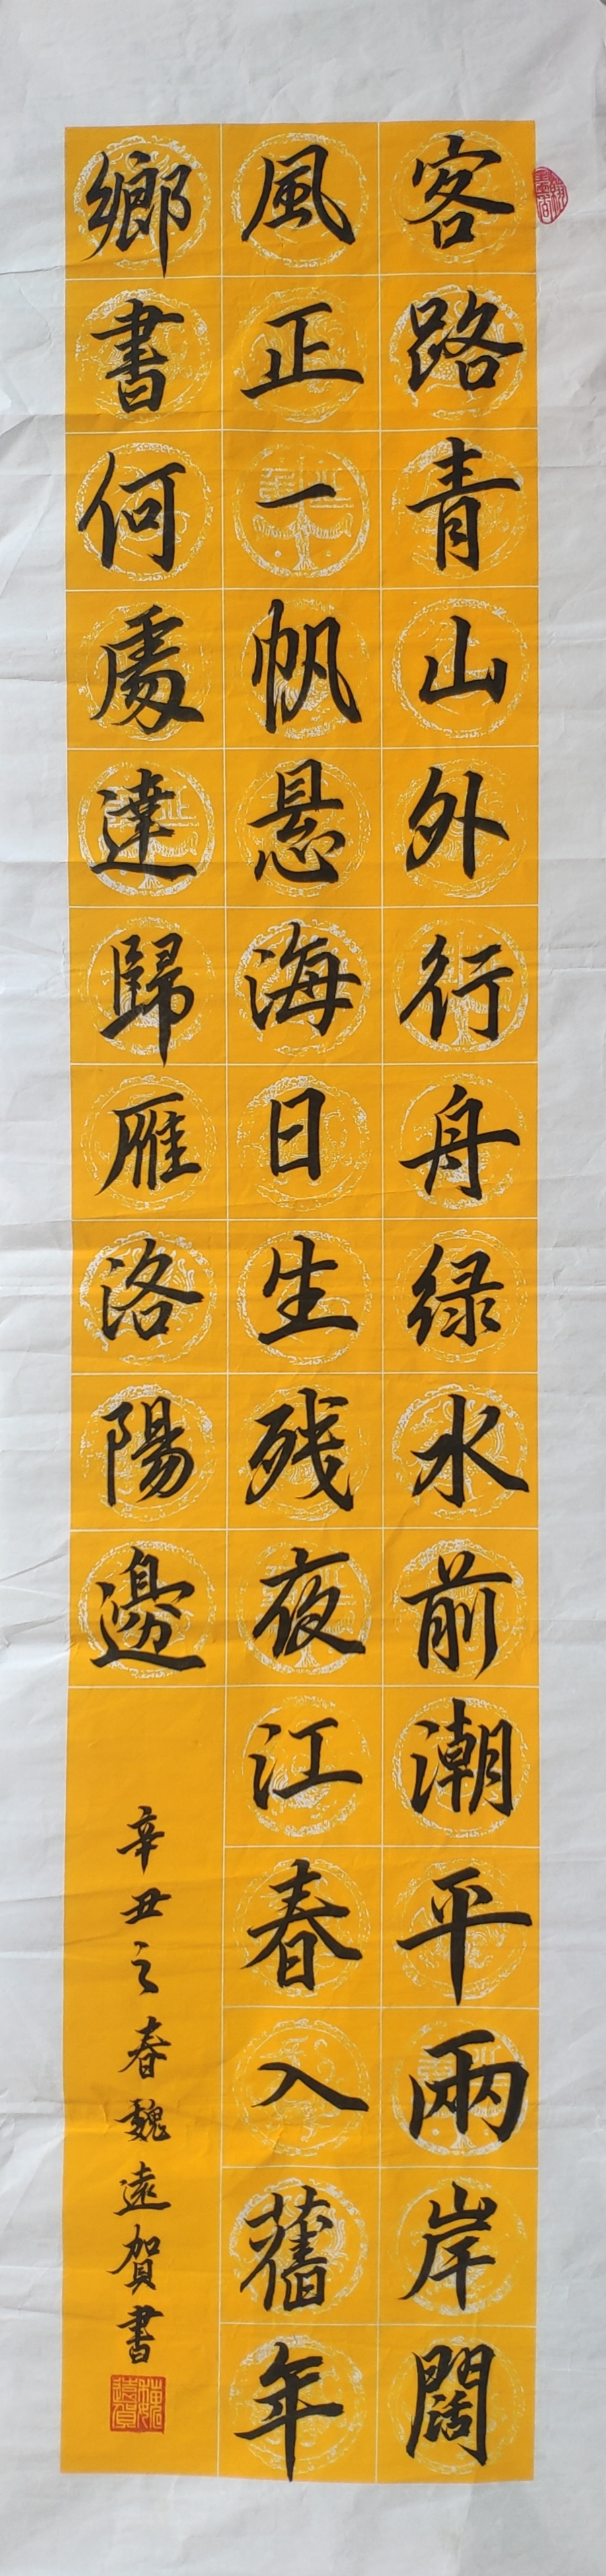 客路青山外行舟绿水前潮平兩岸闊
風正一帆悬海日生残夜江春入舊年
鄉書何處達歸雁洛陽邊
辛丑之春魏遠賀書
魏遠賀